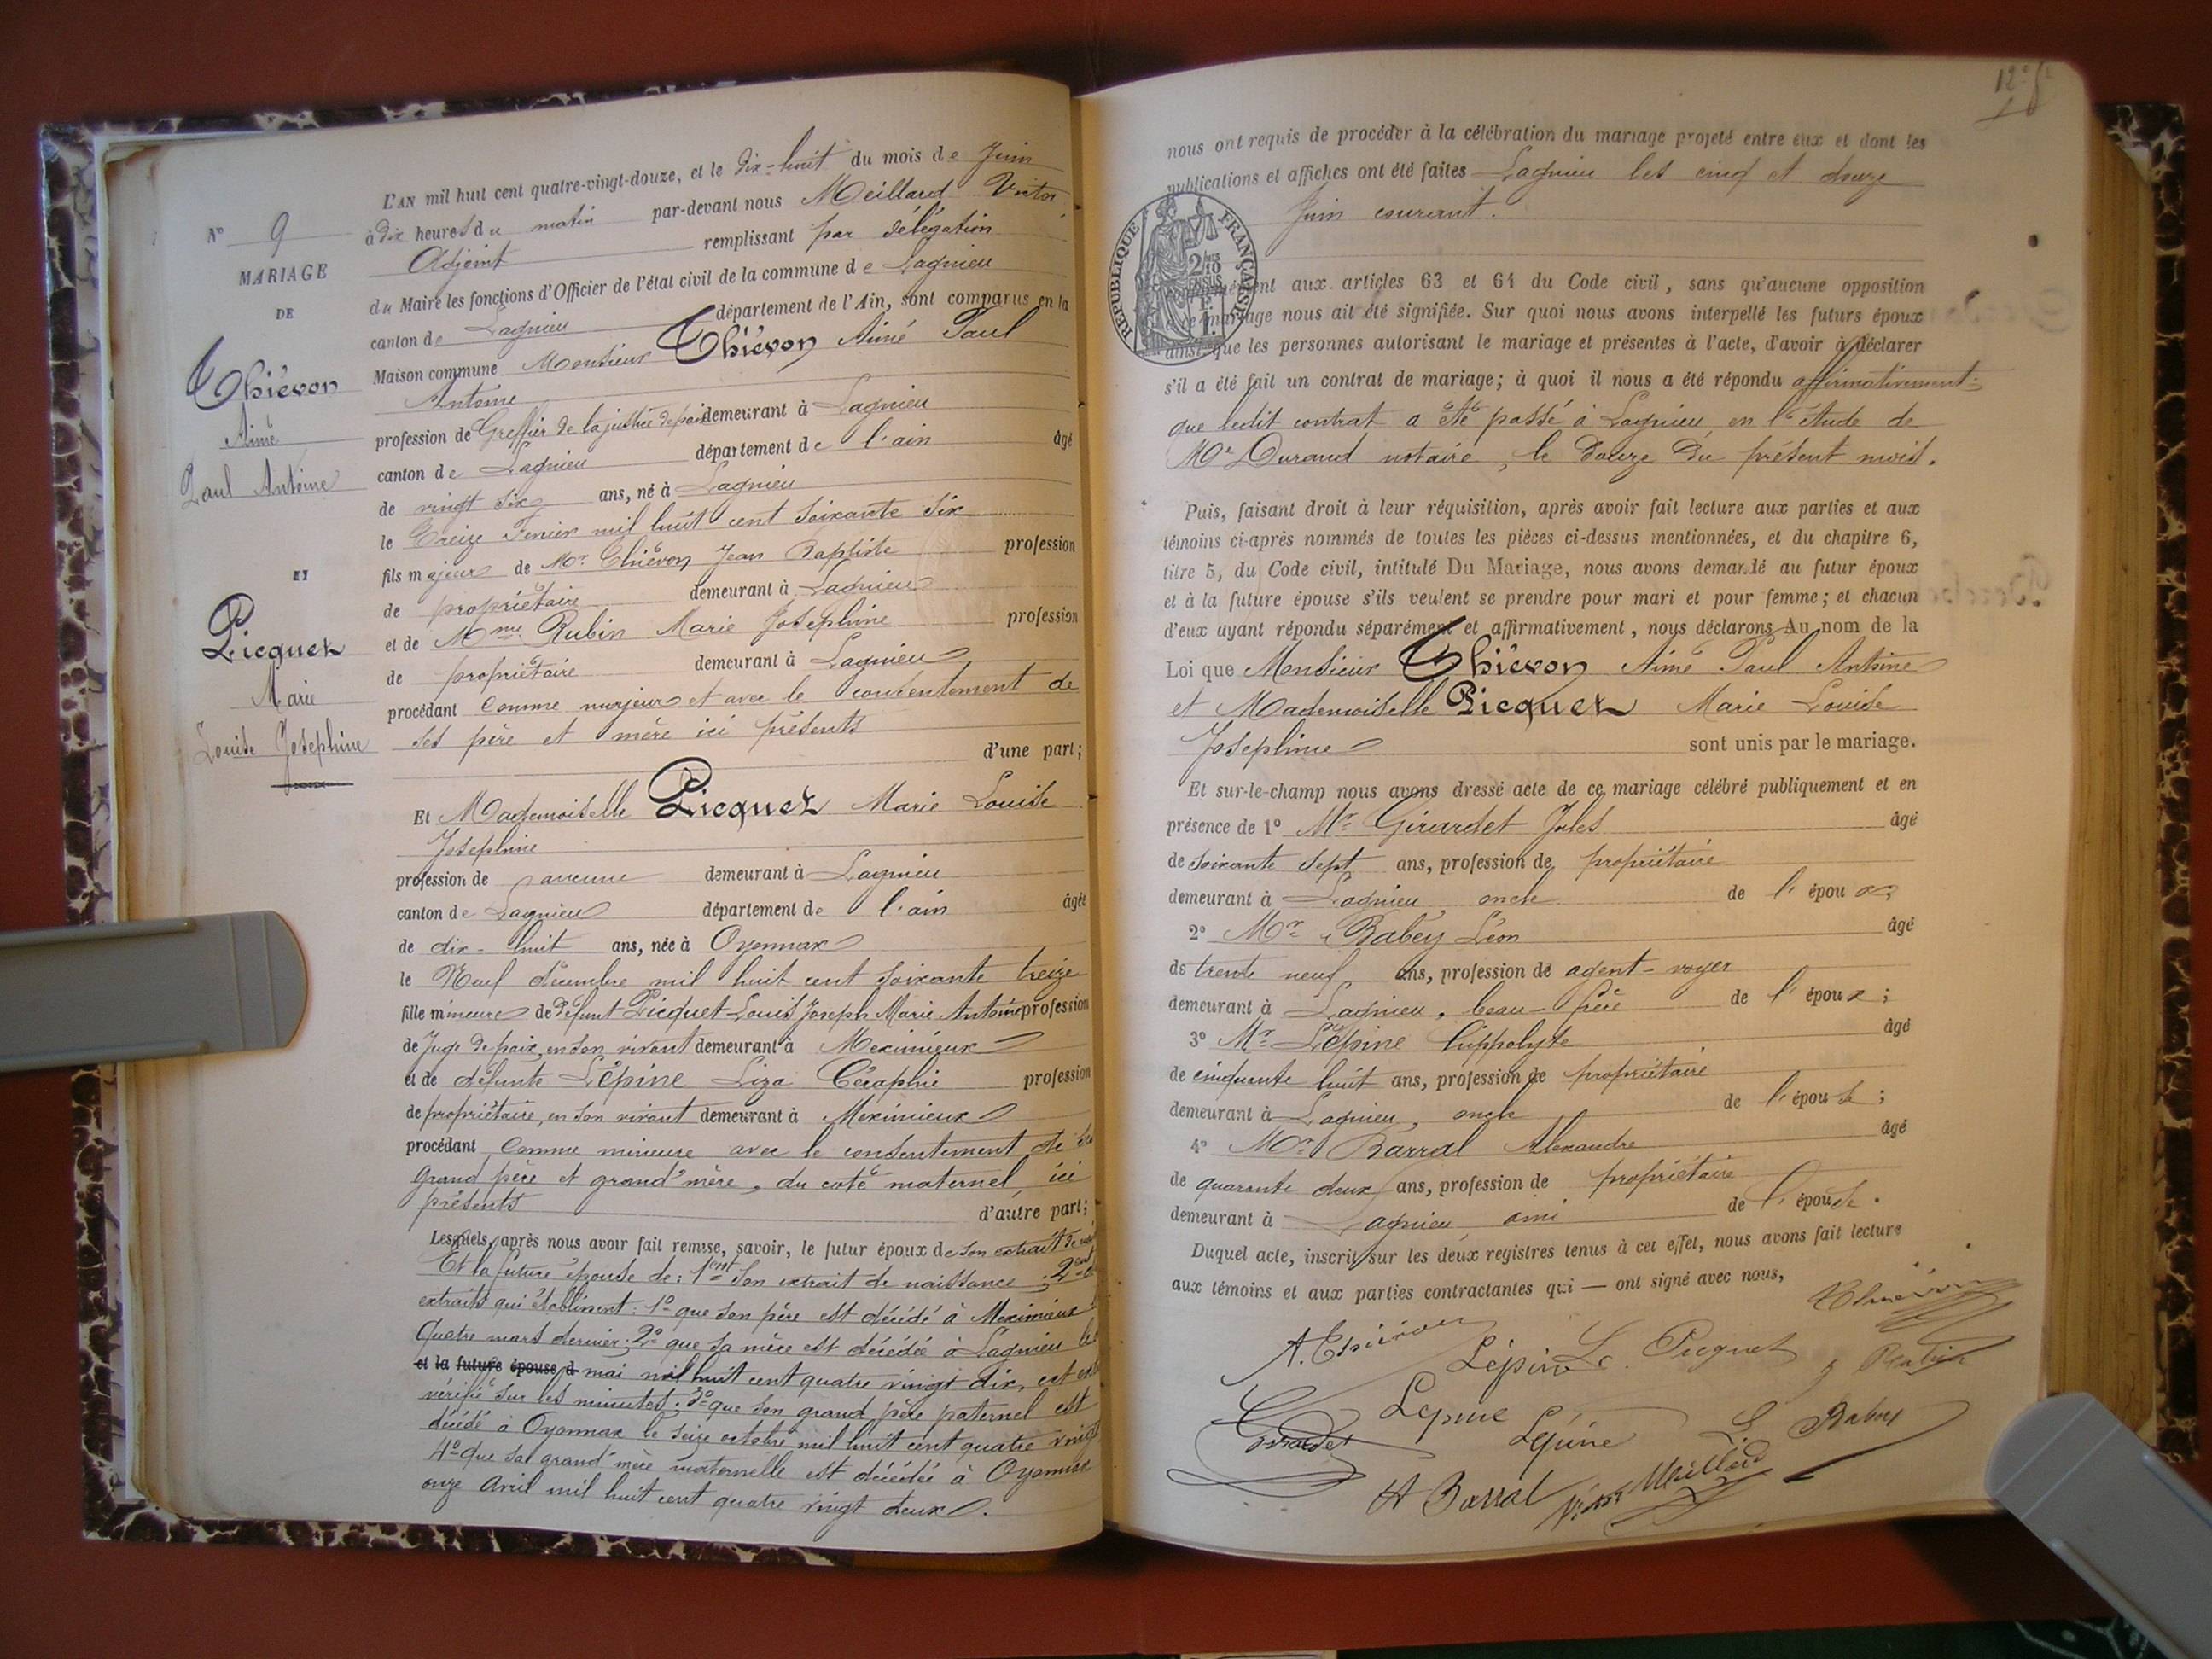 N° 9
MARIAGE
DE
Thiévon
Aimé
Paul Antoine
ET
Picquet
Marie
Louise Josephine
L'AN mil huit cent quatre-vingt-douze, et le dix-huit du mois de Juin
à dix heures du matin par-devant nous Meillard Victor
Adjoint remplissant par délégation
du Maire les fonctions d'Officier de l'état civil de la commune de Lagnieu
canton de Lagnieu département de l'Ain, sont comparus en la
Maison commune Monsieur Thiévon Aimé Paul
Antoine
profession de Greffier de la justice de paix demeurant à Lagnieu
canton de Lagnieu département de l'ain âgé
de vingt six ans, né à Lagnieu
le Treize Fevrier mil huit cent soixante six
fils majeur de Mr Thiévon Jean Baptiste profession
de propriétaire demeurant à Lagnieu
et de Mme Rubin Marie Josephine profession
de propriétaire demeurant à Lagnieu
procédant comme majeur et avec le consentement de
ses père et mère ici présents
d'une part;
Et Mademoiselle Picquet Marie Louise
Josephine
profession de aucune demeurant à Lagnieu
canton de Lagnieu département de l'ain âgée
de dix-huit ans, née à Oyonnax
le Neuf décembre mil huit cent soixante treize
fille mineure de défunt Picquet Louis Joseph Marie Antoine profession
de Juge de paix, en son vivant demeurant à Meximieux
et de défunte Lépine Liza Céraphie profession
de propriétaire, en son vivant demeurant à Meximieux
procédant comme mineure avec le consentement de ses
grand père et grand'mère, du coté maternel, ici
présents d'autre part;
Lesquels, après nous avoir fait remise, savoir, le futur époux de son extrait de
Et la future épouse de: 1ent son extrait de naissance; 2ent
extraits qui établissent: 1° que son père est décédé à Meximieux
Quatre mars dernier; 2° que sa mère est décédée à Lagnieu le
et la future épouse d mai mil huit cent quatre vingt dix, cet
vérifié sur les minutes; 3° que son grand père paternel est
décédé à Oyonnax le seize octobre mil huit cent quatre vingt
4° que sa grand'mère maternelle est décédée à Oyonnax
onze Avril mil huit cent quatre vingt deux.
12e
nous ont requis de procéder à la célébration du mariage projeté entre eux et dont les
publications et affiches ont été faites Lagnieu les cinq et douze
Juin courant.
RÉPUBLIQUE FRANÇAISE
2/10 EN SUS
aux articles 63 et 64 du Code civil, sans qu'aucune opposition
à ce mariage nous ait été signifiée. Sur quoi nous avons interpellé les futurs époux
ainsi que les personnes autorisant le mariage et présentes à l'acte, d'avoir à déclarer
s'il a été fait un contrat de mariage; à quoi il nous a été répondu affirmativement:
que ledit contrat a été passé à Lagnieu, en l'étude de
Me Durand notaire, le douze du présent mois.
Puis, faisant droit à leur réquisition, après avoir fait lecture aux parties et aux
témoins ci-après nommés de toutes les pièces ci-dessus mentionnées, et du chapitre 6,
titre 5, du Code civil, intitulé Du Mariage, nous avons demandé au futur époux
et à la future épouse s'ils veulent se prendre pour mari et pour femme; et chacun
d'eux ayant répondu séparément et affirmativement, nous déclarons Au nom de la
Loi que Monsieur Thiévon Aimé Paul Antoine
et Mademoiselle Picquet Marie Louise
Josephine sont unis par le mariage.
Et sur-le-champ nous avons dressé acte de ce mariage célébré publiquement et en
présence de 1° Mr Girardet Jules âgé
de soixante sept ans, profession de propriétaire
demeurant à Lagnieu, oncle de l'époux,
2° Mr Babey Léon âgé
de trente neuf ans, profession de agent-voyer
demeurant à Lagnieu, beau-frère de l'époux;
3° Mr Lépine hippolyte âgé
de cinquante huit ans, profession de propriétaire
demeurant à Lagnieu, oncle de l'épouse;
4° Mr Barral Alexandre âgé
de quarante deux ans, profession de propriétaire
demeurant à Lagnieu, ami de l'épouse.
Duquel acte, inscrit sur les deux registres tenus à cet effet, nous avons fait lecture
aux témoins et aux parties contractantes qui — ont signé avec nous,
Thiévon
A. Thiévon Lépine L. Picquet Rubin
Girardet Lepine Lépine L. Babey
A Barral Victor Meillard